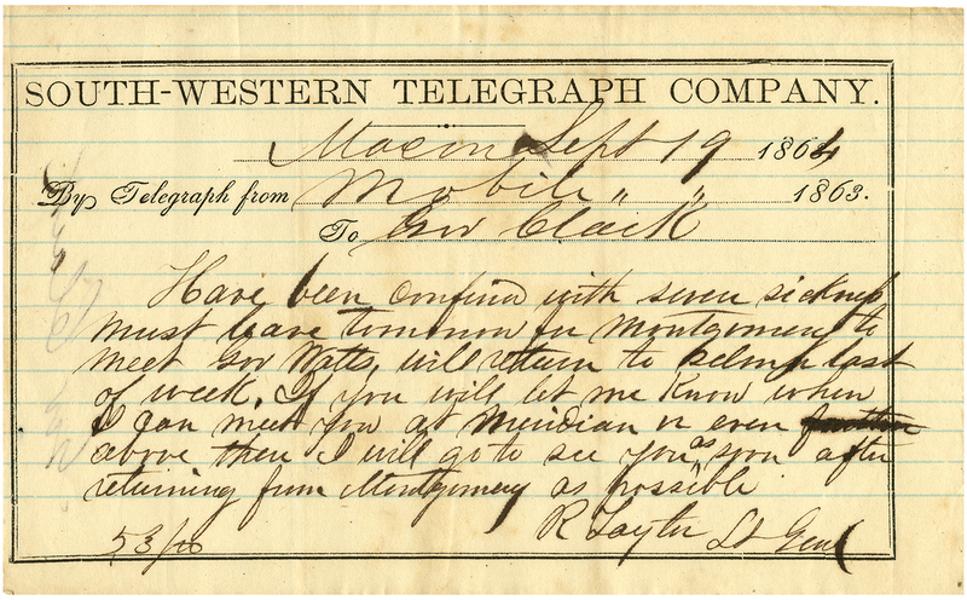 SOUTH-WESTERN TELEGRAPH COMPANY.
Macon Sept 19 1864
By Telegraph from Mobile " " 1863.
To Gov Clark
Have been confined with seven sickness
must leave tomorrow for Montgomery to
meet Gov Watts, will return to Selma last
of week. If you will let me know when
I can meet you at Meridian or even
above there I will go to see you as soon after
returning from Montgomery as possible
R Taylor Lt Genl
53/